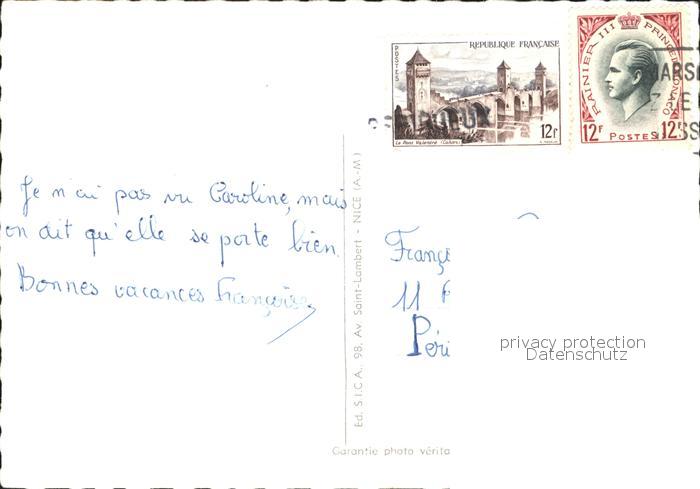 REPUBLIQUE FRANÇAISE
POSTES
Le Pont Valentré (Cahors)
12f
RAINIER III PRINCE DE MONACO
12F POSTES 12F
MARS
Je n'ai pas vu Caroline, mais
on dit qu'elle se porte bien.
Bonnes vacances Françoise
Ed. S.I.C.A., 98, Av. Saint-Lambert - NICE (A.-M)
Garantie photo vérita
França
11
Péri
privacy protection
Datenschutz